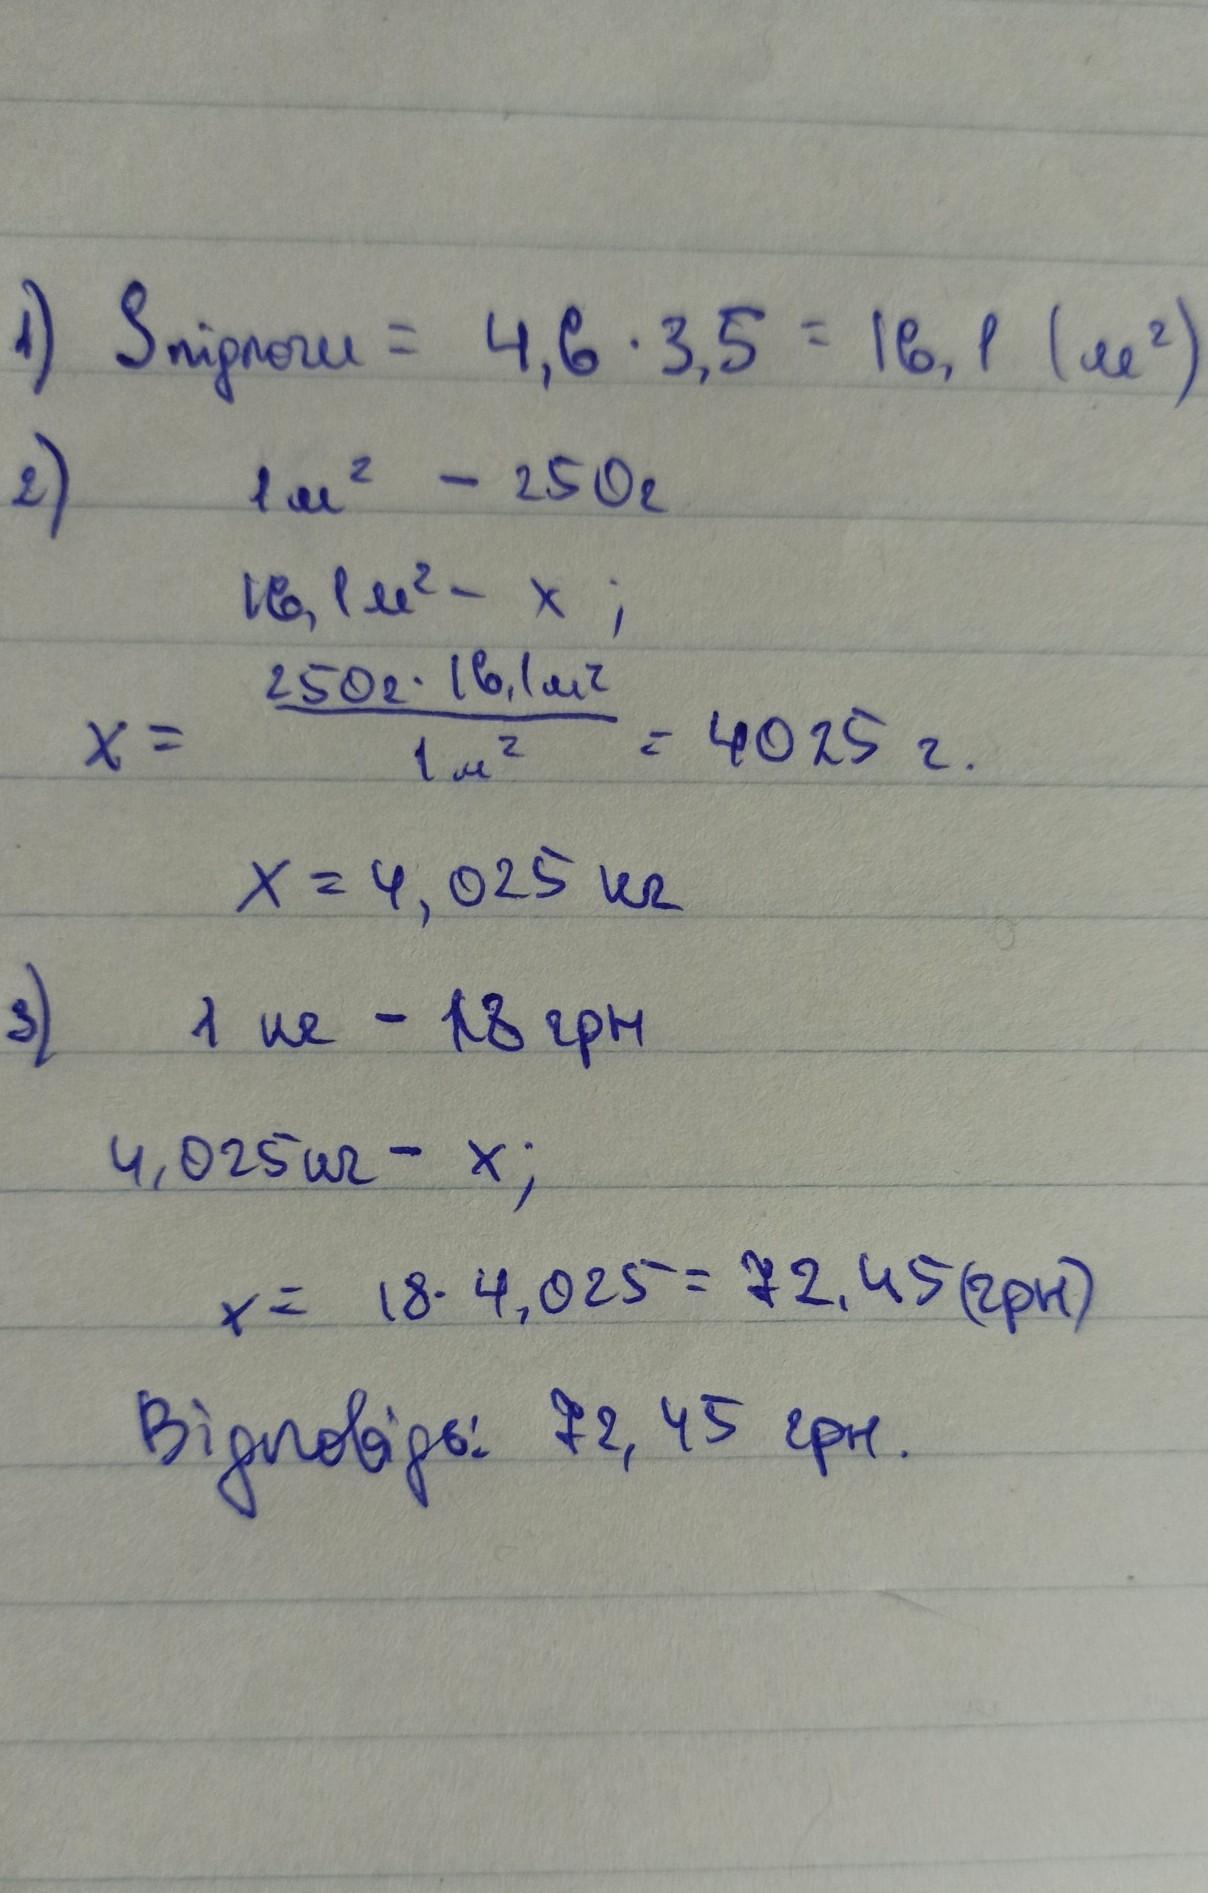 1) Sпідлоги = 4,6 · 3,5 = 16,1 (м²)
2) 1м² - 250г
16,1м² - x ;
x = 250г · 16,1м² / 1м² = 4025 г.
x = 4,025 кг
3) 1 кг - 18 грн
4,025кг - x;
x = 18 · 4,025 = 72,45 (грн)
Відповідь: 72,45 грн.